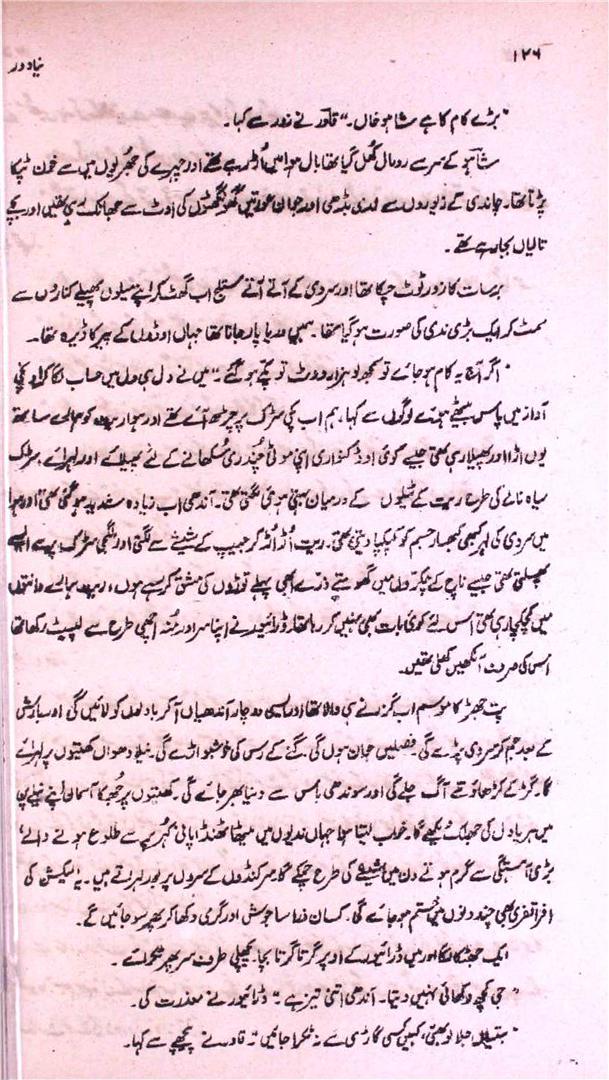 ۱۲۶
نیا دور
"بڑے کام کا ہے شاہو خاں۔" قادر نے زور سے کہا۔
شاہو کے سر سے رومال کھل گیا تھا بال ہوا میں اُڑ رہے تھے اور چہرے کی جھریوں میں سے خون ٹپکا
پڑتا تھا۔ چاندی کے زیوروں سے لدی بڈھی اور جوان عورتیں گھونگھٹوں کی اوٹ سے جھانک رہی تھیں اور بچے
تالیاں بجا رہے تھے۔
برسات کا زور ٹوٹ چکا تھا اور سردی کے آتے آتے ستلج اب گھٹ کر اپنے میلوں پھیلے کناروں سے
سمٹ کر ایک بڑی ندی کی صورت ہو گیا تھا۔ ہمیں دریا پار جانا تھا جہاں اوڈوں کے پیر کا ڈیرہ تھا۔
"اگر آج یہ کام ہو جائے تو سمجھو ہزار ووٹ تو پکے ہو گئے۔" میں نے دل ہی دل میں حساب لگا کر اونچی
آواز میں پاس بیٹھے ہوئے لوگوں سے کہا، ہم اب پکی سڑک پر چڑھ آئے تھے اور ہوا ریت کو ہمارے سامنے
یوں اڑا اور پھیلا رہی تھی جیسے کوئی اوڈ کنواری اپنی موٹی چُندری سُکھانے کے لئے پھیلائے اور لہرائے سڑک
سیاہ نالے کی طرح ریت کے ٹیلوں کے درمیان بہتی ہوئی لگتی تھی۔ آندھی اب زیادہ شدید ہو گئی تھی اور ہوا
میں سردی کی لہر کبھی کبھار جسم کو کپکپا دیتی تھی۔ ریت اُڑ اُڑ کر جیپ کے شیشے سے لگتی اور ننگی سڑک پر سے ایسے
پھسلتی تھی جیسے ناچ کے چکروں میں گھومتے ذرے ابھی پہلے توڑوں کی مشق کر رہے ہوں، ریت ہمارے دانتوں
میں کچکچا رہی تھی اس لئے کوئی بات بھی نہیں کر رہا تھا۔ ڈرائیور نے اپنا سر اور منہ اچھی طرح سے لپیٹ رکھا تھا
اس کی صرف آنکھیں کھلی تھیں۔
پت جھڑ کا موسم اب گزرنے ہی والا تھا اور ایسی دو چار آندھیاں آ کر بادلوں کو لائیں گی اور بارش
کے بعد جم کر سردی پڑے گی۔ فصلیں جوان ہوں گی۔ گنے کے رس کی خوشبو اڑے گی۔ نیلا دھواں کھیتوں پر لہرائے
گا۔ گڑ کے کڑھاؤ تلے آگ جلے گی اور سوندھی باس سے دنیا بھر جائے گی۔ کھیتوں پر جھکا آسمان اپنے نیلے پن
میں ہریاول کی جھلک دیکھے گا۔ خواب لیتا ہوا جہاں ندیوں میں میٹھا ٹھنڈا پانی، کُہر میں سے طلوع ہونے والے،
بڑی آہستگی سے گرم ہوتے دن میں شیشے کی طرح چمکے گا سرکنڈوں کے سروں پر بور لہراتے ہیں۔ یہ الیکشن کی
افراتفری بھی چند دنوں میں ختم ہو جائے گی۔ کسان ذرا سا جوش اور گرمی دکھا کر پھر سو جائیں گے۔
ایک جھٹکا لگا اور میں ڈرائیور کے اوپر گرتا گرتا بچا۔ پچھلی طرف سر پھر ٹکرائے۔
"جی کچھ دکھائی نہیں دیتا۔ آندھی اتنی تیز ہے۔" ڈرائیور نے معذرت کی۔
"بتیاں جلا لو بھئی، کہیں کسی گاڑی سے نہ ٹکرا جائیں" قادر نے پیچھے سے کہا۔